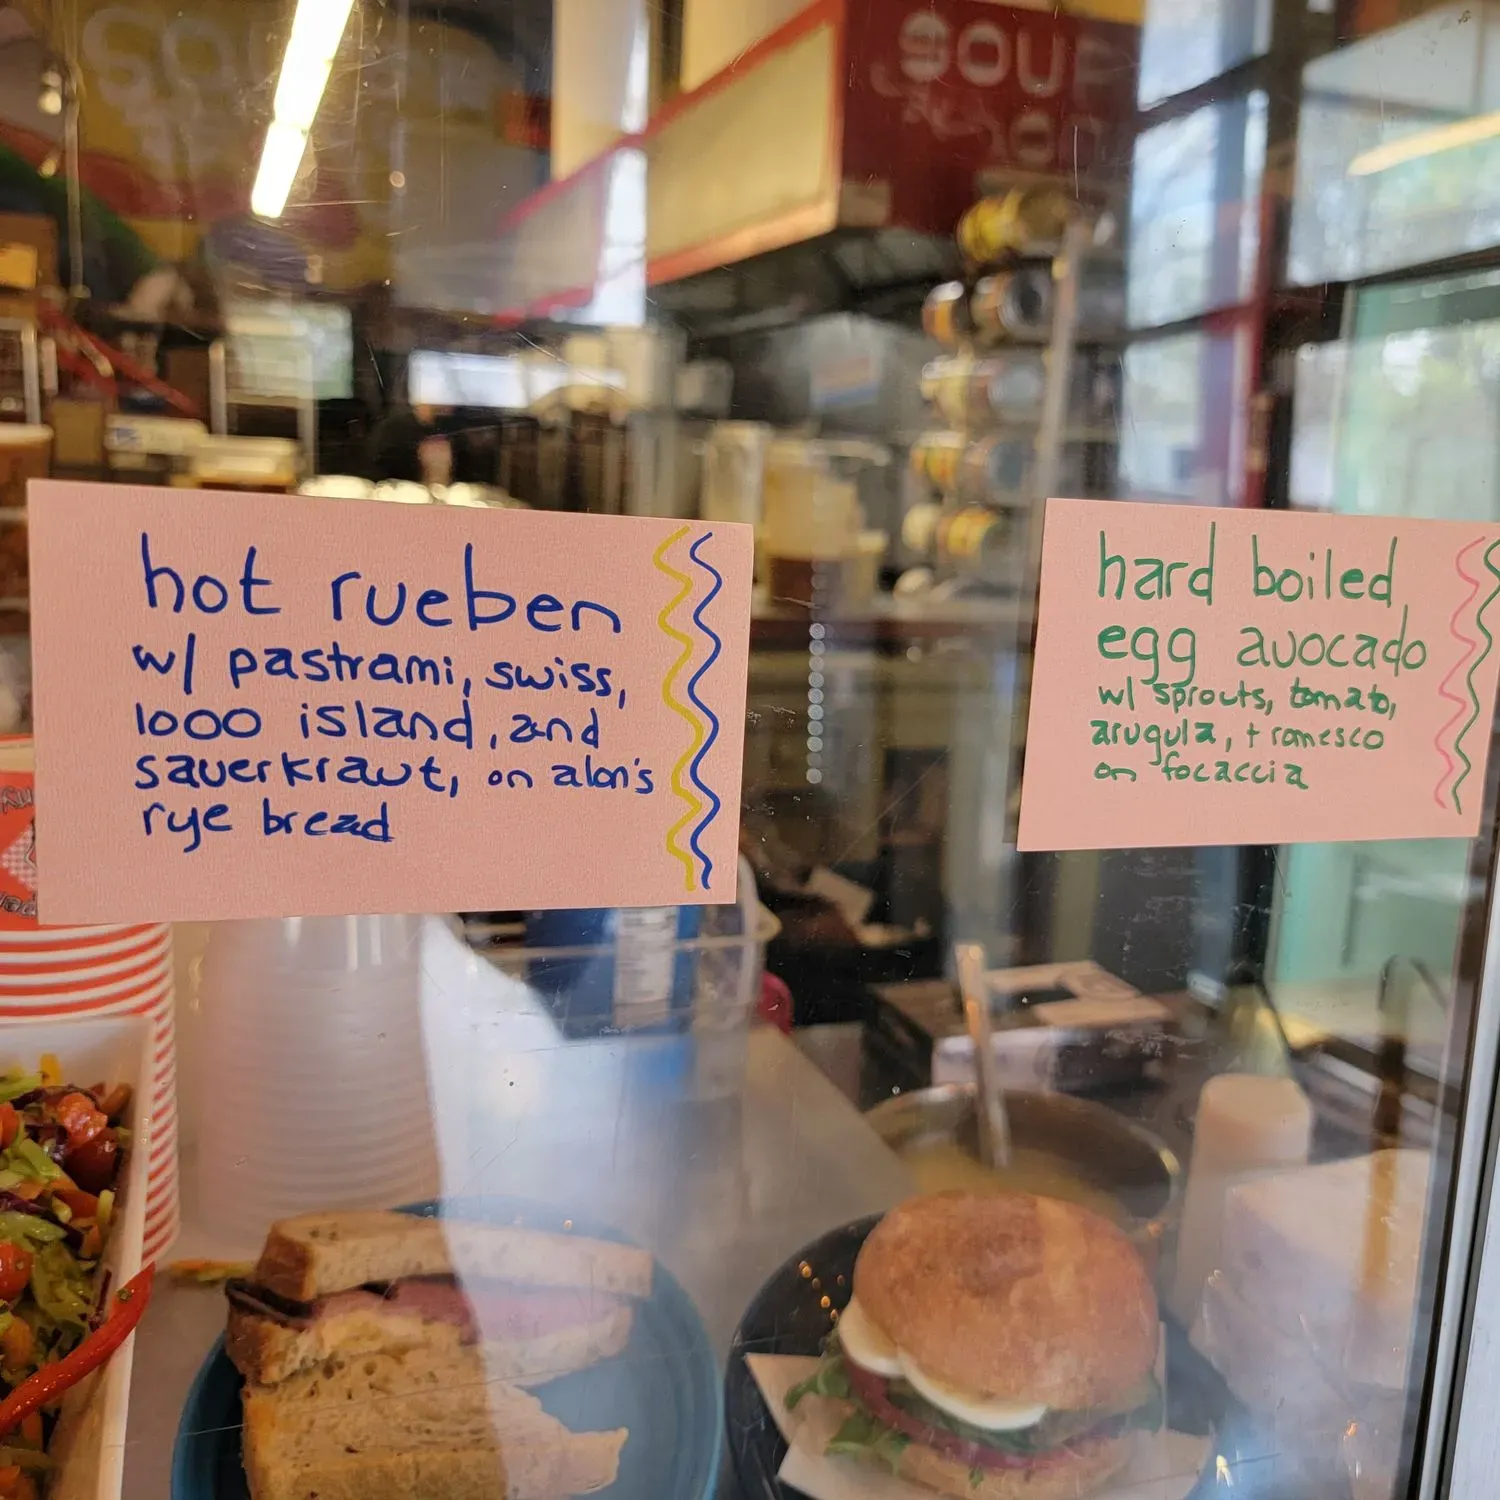 SOUP
hot rueben
w/ pastrami, swiss,
1000 island, and
sauerkraut, on alon's
rye bread
hard boiled
egg avocado
w/ sprouts, tomato,
arugula, + romesco
on focaccia